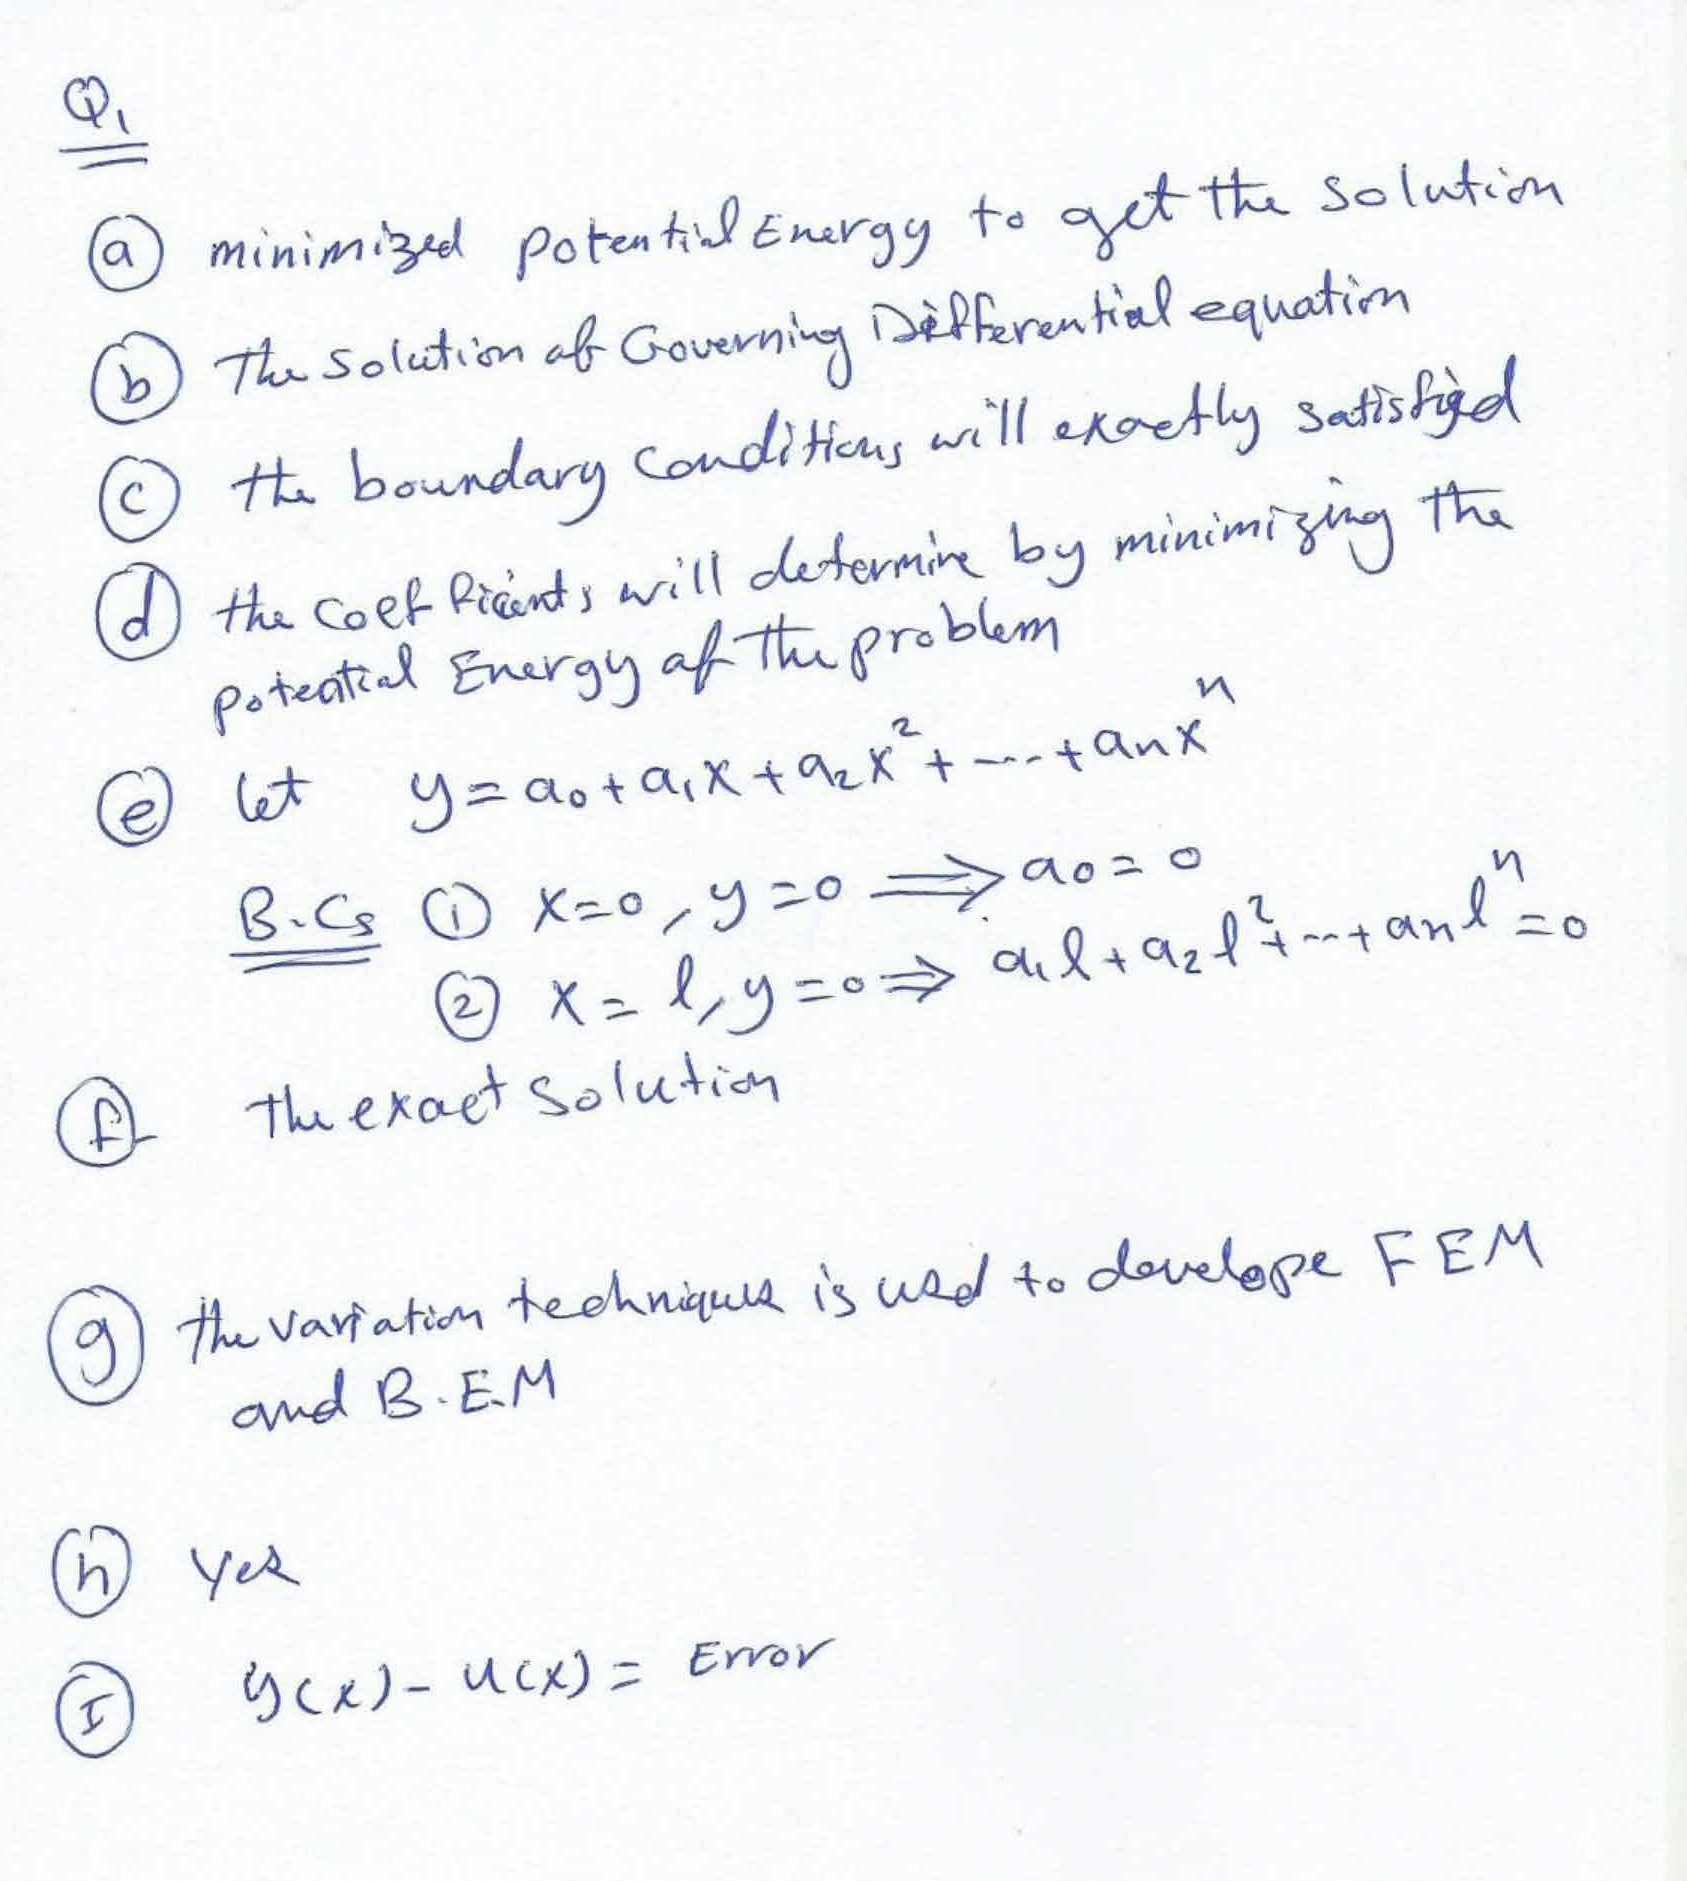 Q1
(a) minimized potential Energy to get the solution
(b) The solution of Governing Differential equation
(c) the boundary conditions will exactly satisfied
(d) the coefficients will determine by minimizing the
potential Energy of the problem
(e) let y = a₀ + a₁x + a₂x² + ---- + aₙxⁿ
B.Cs (1) x=0, y=0 ⟹ a₀ = 0
(2) x = l, y=0 ⟹ a₁l + a₂l² + --- + aₙlⁿ = 0
(f) The exact solution
(g) the variation techniques is used to develope FEM
and B.E.M
(h) Yes
(I) y(x) - u(x) = Error